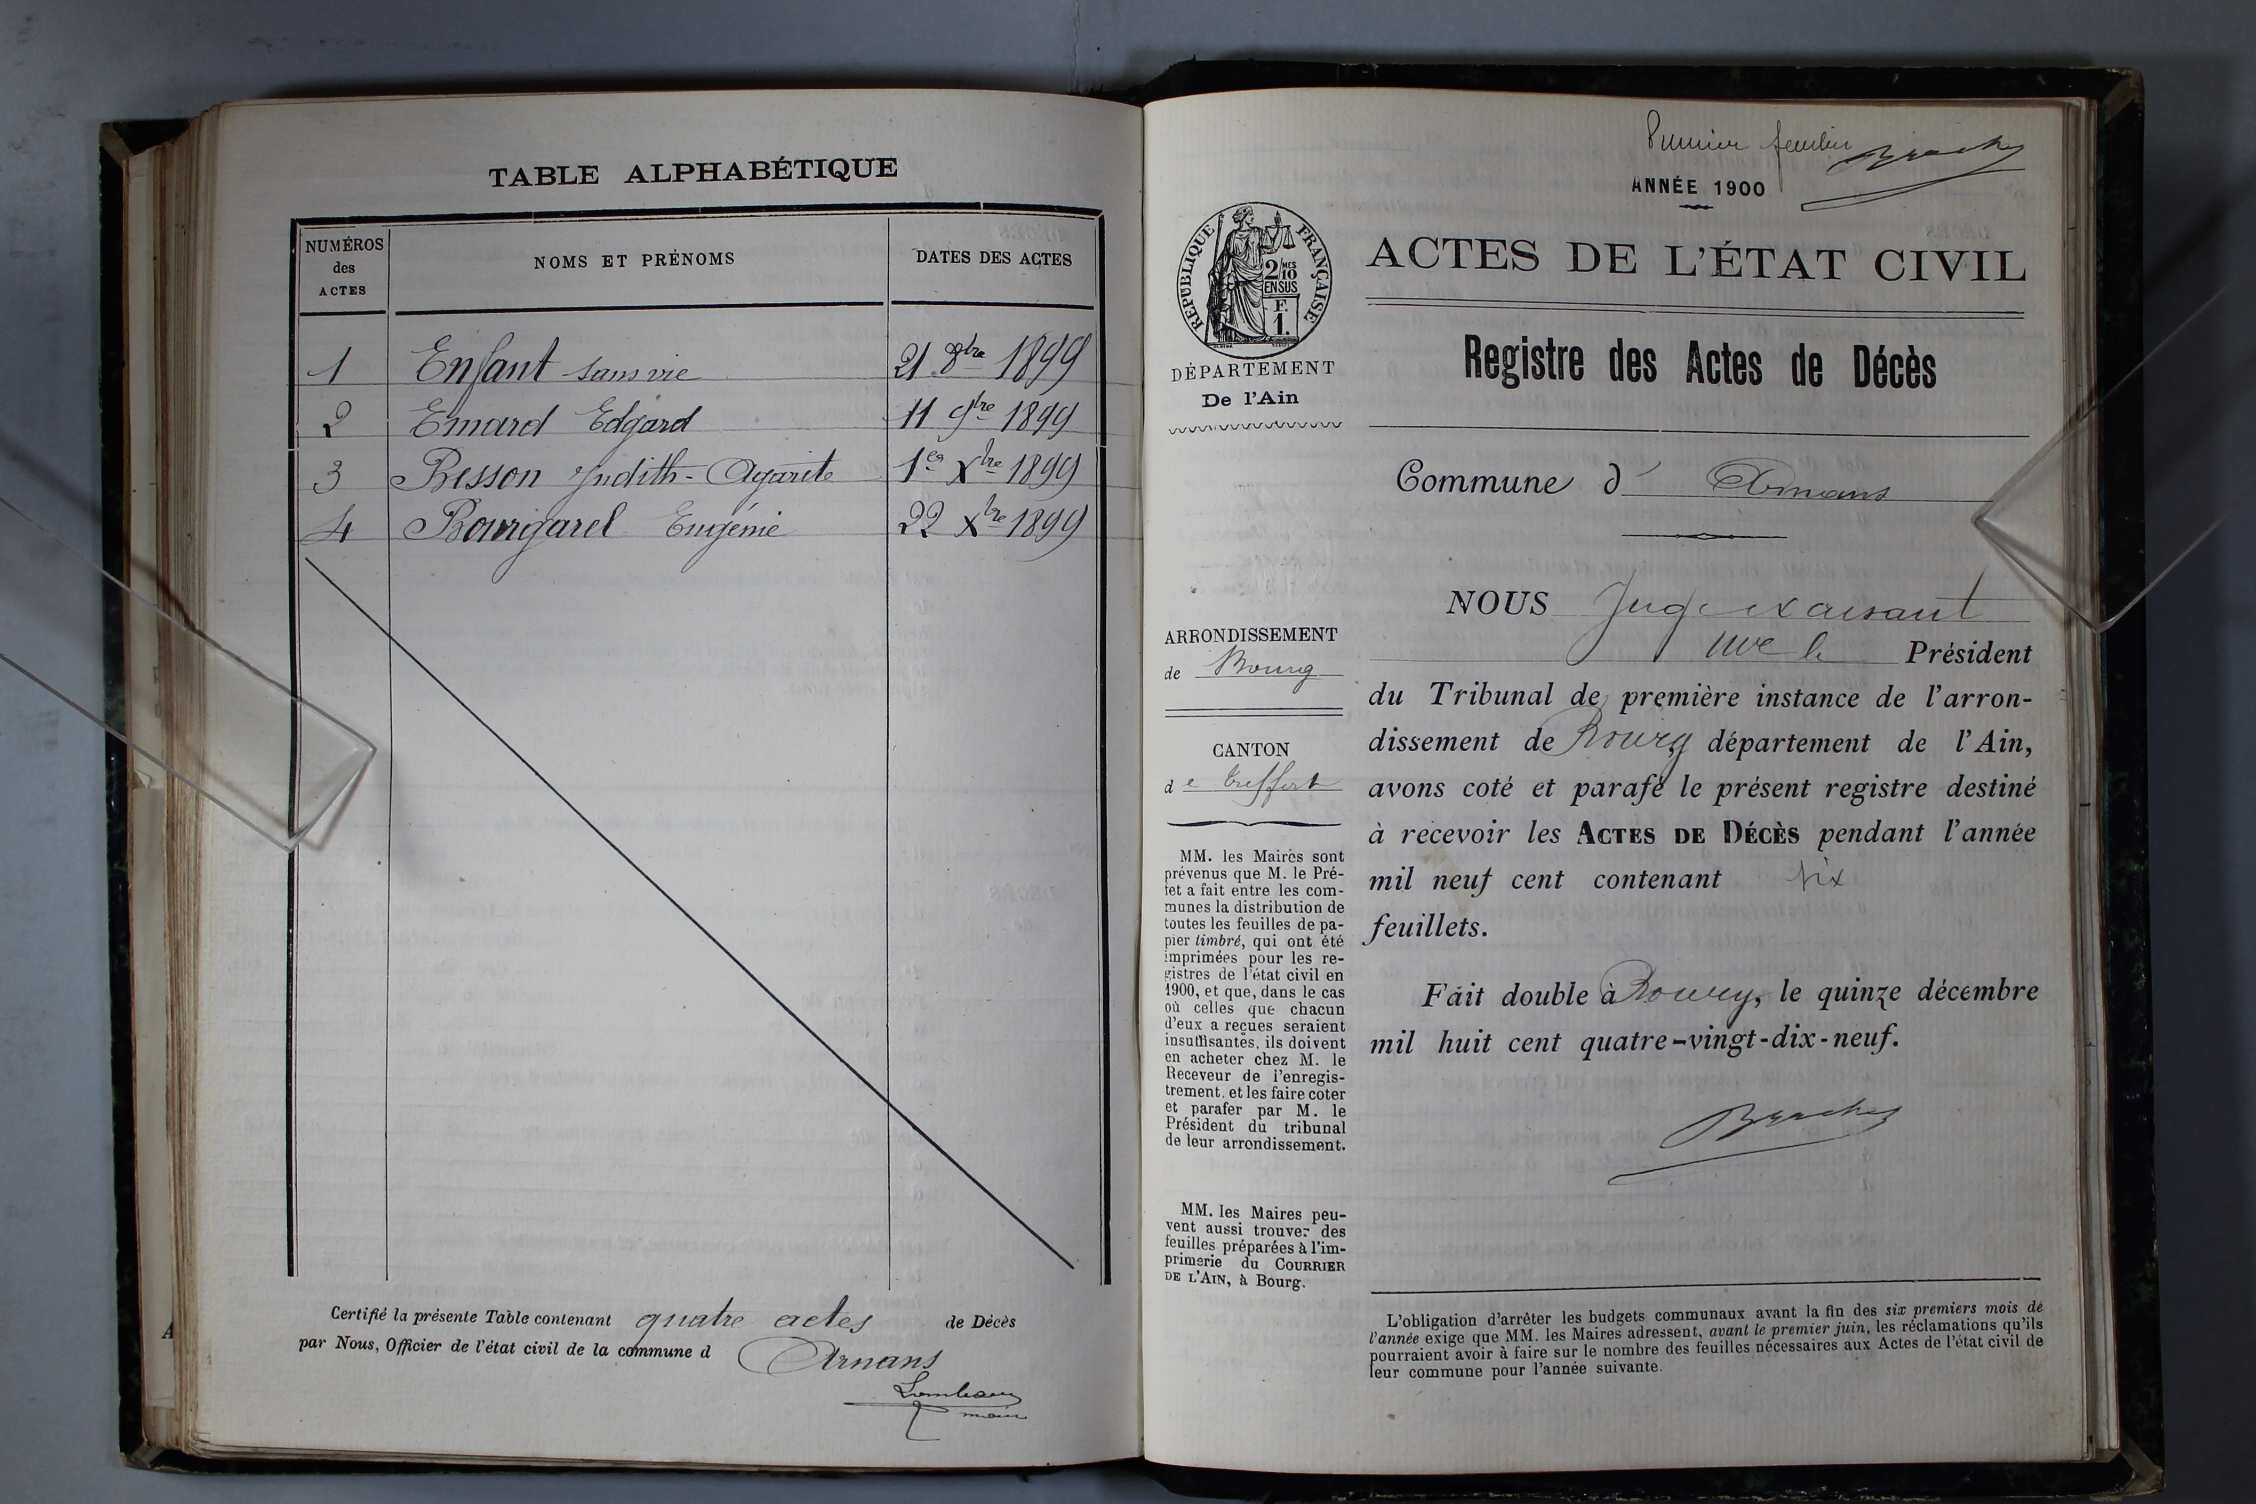 TABLE ALPHABÉTIQUE
NUMÉROS des ACTES
NOMS ET PRÉNOMS
DATES DES ACTES
1 Enfant sans vie 21 8bre 1899
2 Emard Edgard 11 9bre 1899
3 Besson Judith-Agarite 1er Xbre 1899
4 Bourgarel Eugénie 22 Xbre 1899
Certifié la présente Table contenant quatre actes de Décès
par Nous, Officier de l'état civil de la commune d Arnans
maire
Premier feuillet
ANNÉE 1900
RÉPUBLIQUE FRANÇAISE
2/10 MES
EN SUS
F.
1.
DÉPARTEMENT
De l'Ain
ARRONDISSEMENT
de Bourg
CANTON
de Treffort
MM. les Maires sont
prévenus que M. le Pré-
fet a fait entre les com-
munes la distribution de
toutes les feuilles de pa-
pier timbré, qui ont été
imprimées pour les re-
gistres de l'état civil en
1900, et que, dans le cas
où celles que chacun
d'eux a reçues seraient
insuffisantes, ils doivent
en acheter chez M. le
Receveur de l'enregis-
trement, et les faire coter
et parafer par M. le
Président du tribunal
de leur arrondissement.
MM. les Maires peu-
vent aussi trouver des
feuilles préparées à l'im-
primerie du COURRIER
DE L'AIN, à Bourg.
ACTES DE L'ÉTAT CIVIL
Registre des Actes de Décès
Commune d' Arnans
NOUS Juge
le Président
du Tribunal de première instance de l'arron-
dissement de Bourg département de l'Ain,
avons coté et parafé le présent registre destiné
à recevoir les ACTES DE DÉCÈS pendant l'année
mil neuf cent contenant six
feuillets.
Fait double à Bourg, le quinze décembre
mil huit cent quatre-vingt-dix-neuf.
L'obligation d'arrêter les budgets communaux avant la fin des six premiers mois de
l'année exige que MM. les Maires adressent, avant le premier juin, les réclamations qu'ils
pourraient avoir à faire sur le nombre des feuilles nécessaires aux Actes de l'état civil de
leur commune pour l'année suivante.